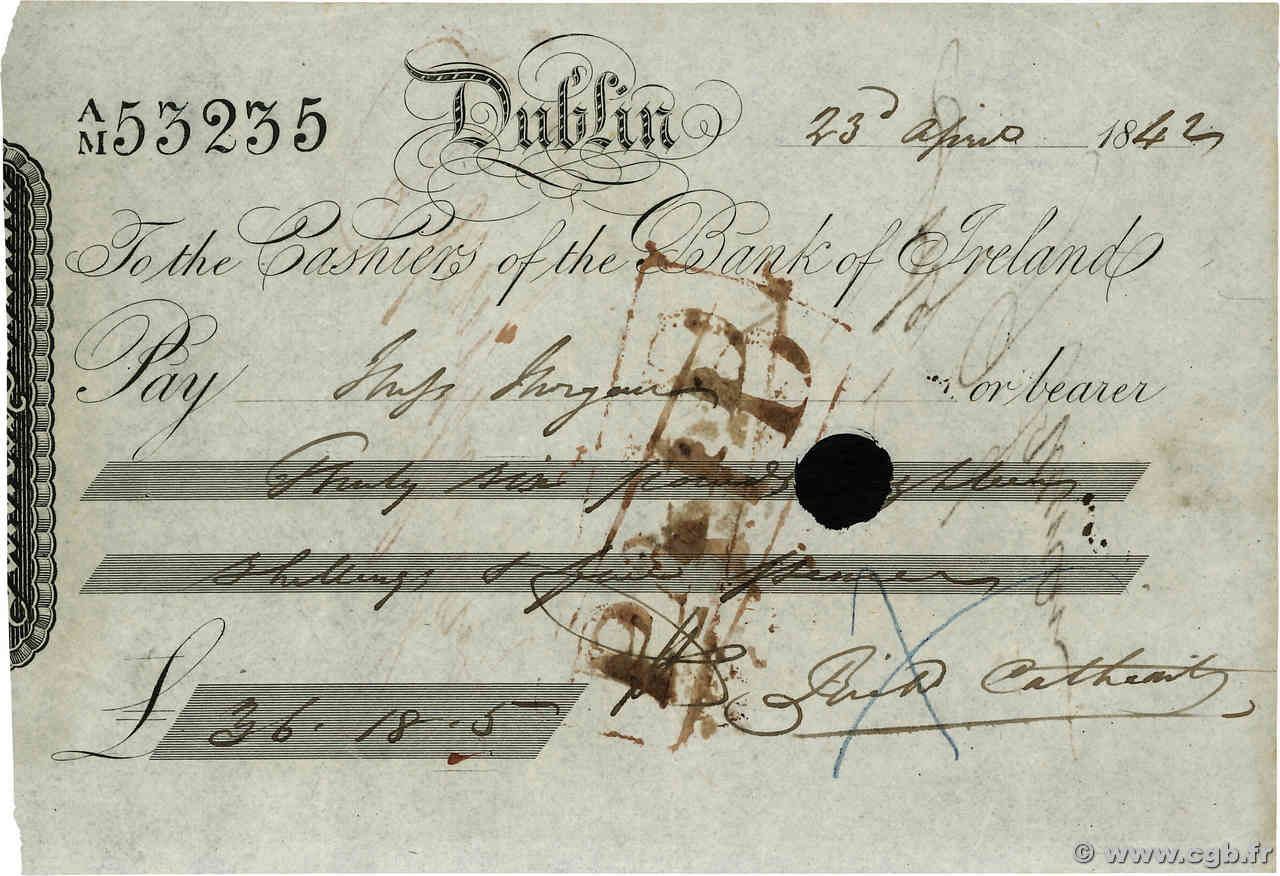 A/M 53235 Dublin 23d April 1842
To the Cashiers of the Bank of Ireland
Pay Morgan or bearer
Thirty six pounds eighteen
shillings & five pence
£ 36.18.5 Cathcart
PAID
© www.cgb.fr